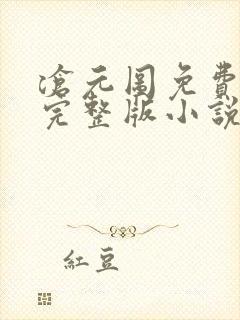 滄元圖免費
完整版小說
紅豆